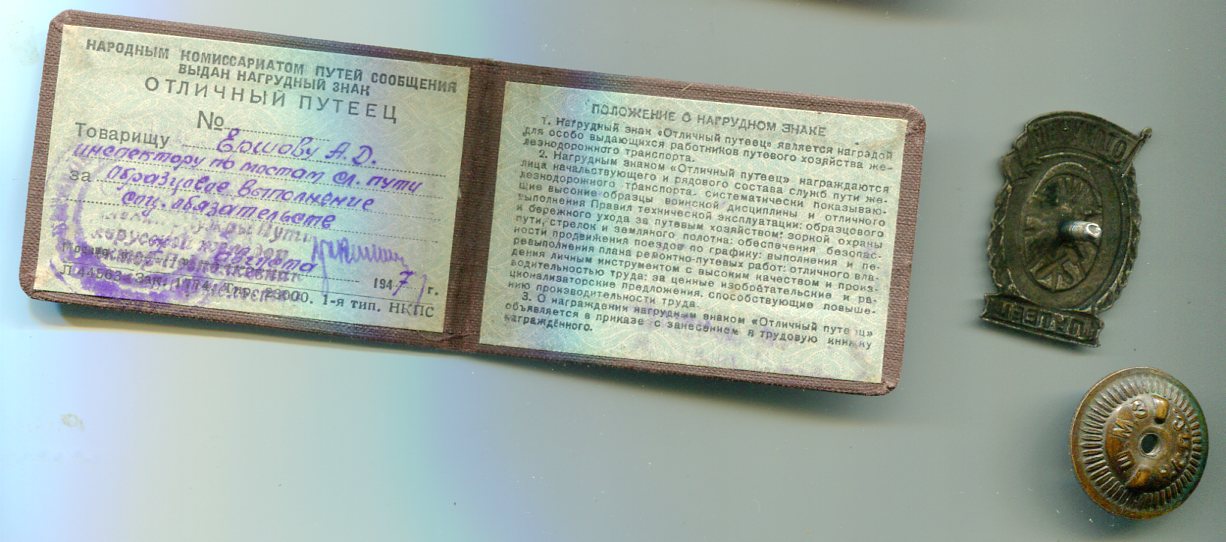 НАРОДНЫМ КОМИССАРИАТОМ ПУТЕЙ СООБЩЕНИЯ
ВЫДАН НАГРУДНЫЙ ЗНАК
ОТЛИЧНЫЙ ПУТЕЕЦ
№
Товарищу Ершову А.Д.
инспектору по мостам сл. пути
за образцовое выполнение
соц. обязательств
1947 г.
Л44563 Зак. 1774. Тир. 25000. 1-я тип. НКПС
ПОЛОЖЕНИЕ О НАГРУДНОМ ЗНАКЕ
1. Нагрудный знак «Отличный путеец» является наградой
для особо выдающихся работников путевого хозяйства же-
лезнодорожного транспорта.
2. Нагрудным знаком «Отличный путеец» награждаются
лица начальствующего и рядового состава служб пути же-
лезнодорожного транспорта, систематически показываю-
щие высокие образцы воинской дисциплины и отличного
выполнения Правил технической эксплуатации; образцового
и бережного ухода за путевым хозяйством; зоркой охраны
пути, стрелок и земляного полотна; обеспечения безопас-
ности продвижения поездов по графику; выполнения и пе-
ревыполнения плана ремонтно-путевых работ; отличного вла-
дения личным инструментом с высоким качеством и произ-
водительностью труда; за ценные изобретательские и ра-
ционализаторские предложения, способствующие повыше-
нию производительности труда.
3. О награждении нагрудным знаком «Отличный путеец»
объявляется в приказе с занесением в трудовую книжку
награждённого.